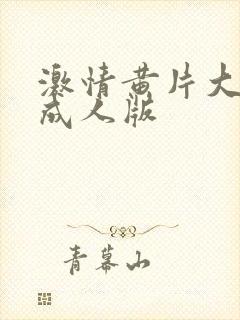 激情黄片大
成人版
青幕山